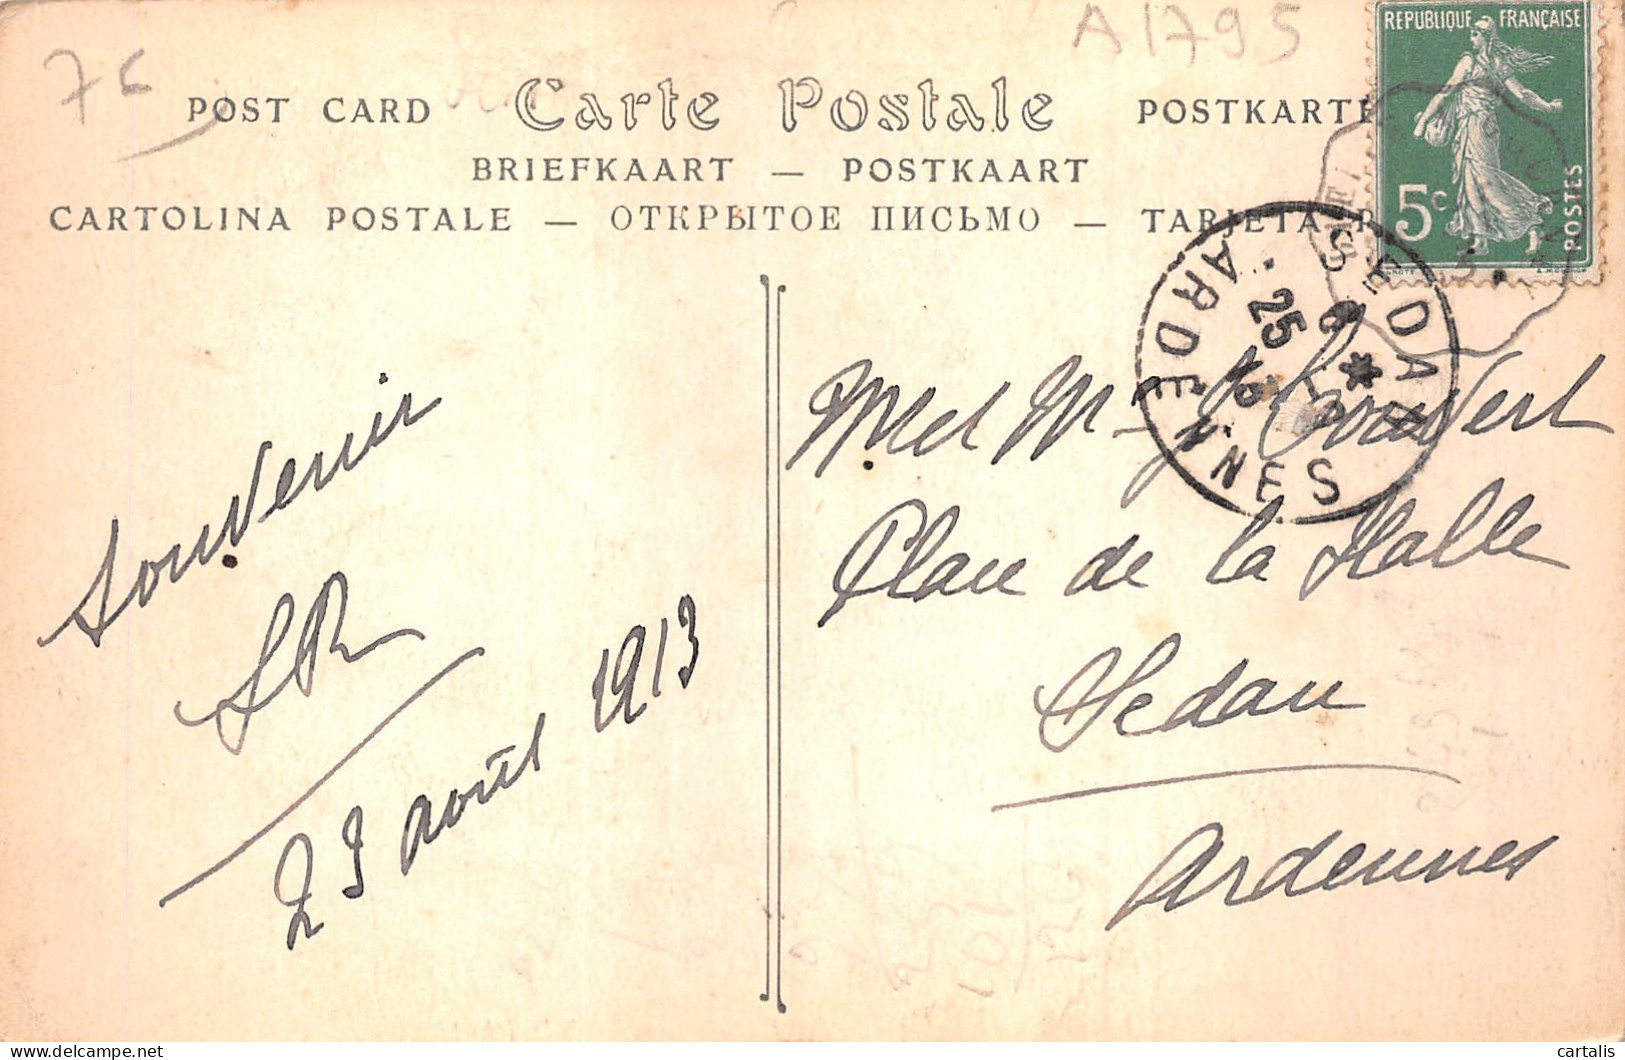 76
A1795
POST CARD Carte Postale POSTKARTE
BRIEFKAART — POSTKAART
CARTOLINA POSTALE — ОТКРЫТОЕ ПИСЬМО — TARJETA P
REPUBLIQUE FRANÇAISE
5c
POSTES
SEDAN
ARDENNES
25
13
Souvenir
LR
23 août 1913
et M
Place de la Halle
Sedan
Ardennes
cartalis